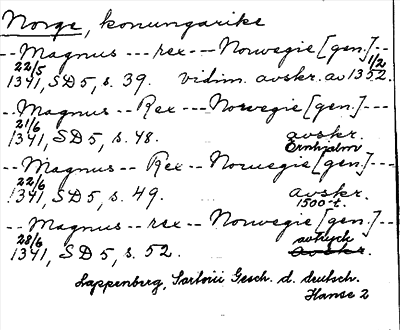 Norge, konungarike
-- Magnus --- rex -- Norwegie [gen.] --
22/5 1341, SD 5, s. 39. vidim. avskr. av 1/2 1352.
-- Magnus -- Rex --- Norwegie [gen.] ---
21/6 1341, SD 5, s. 48. avskr. Örnhjalm
-- Magnus -- Rex -- Noruegie [gen.] ---
22/6 1341, SD 5, s. 49. avskr. 1500-t.
-- Magnus -- rex -- Norwegie [gen.] --
28/6 1341, SD 5, s. 52. avtryck avskr.
Lappenberg, Sartorii Gesch. d. deutsch.
Hanse 2